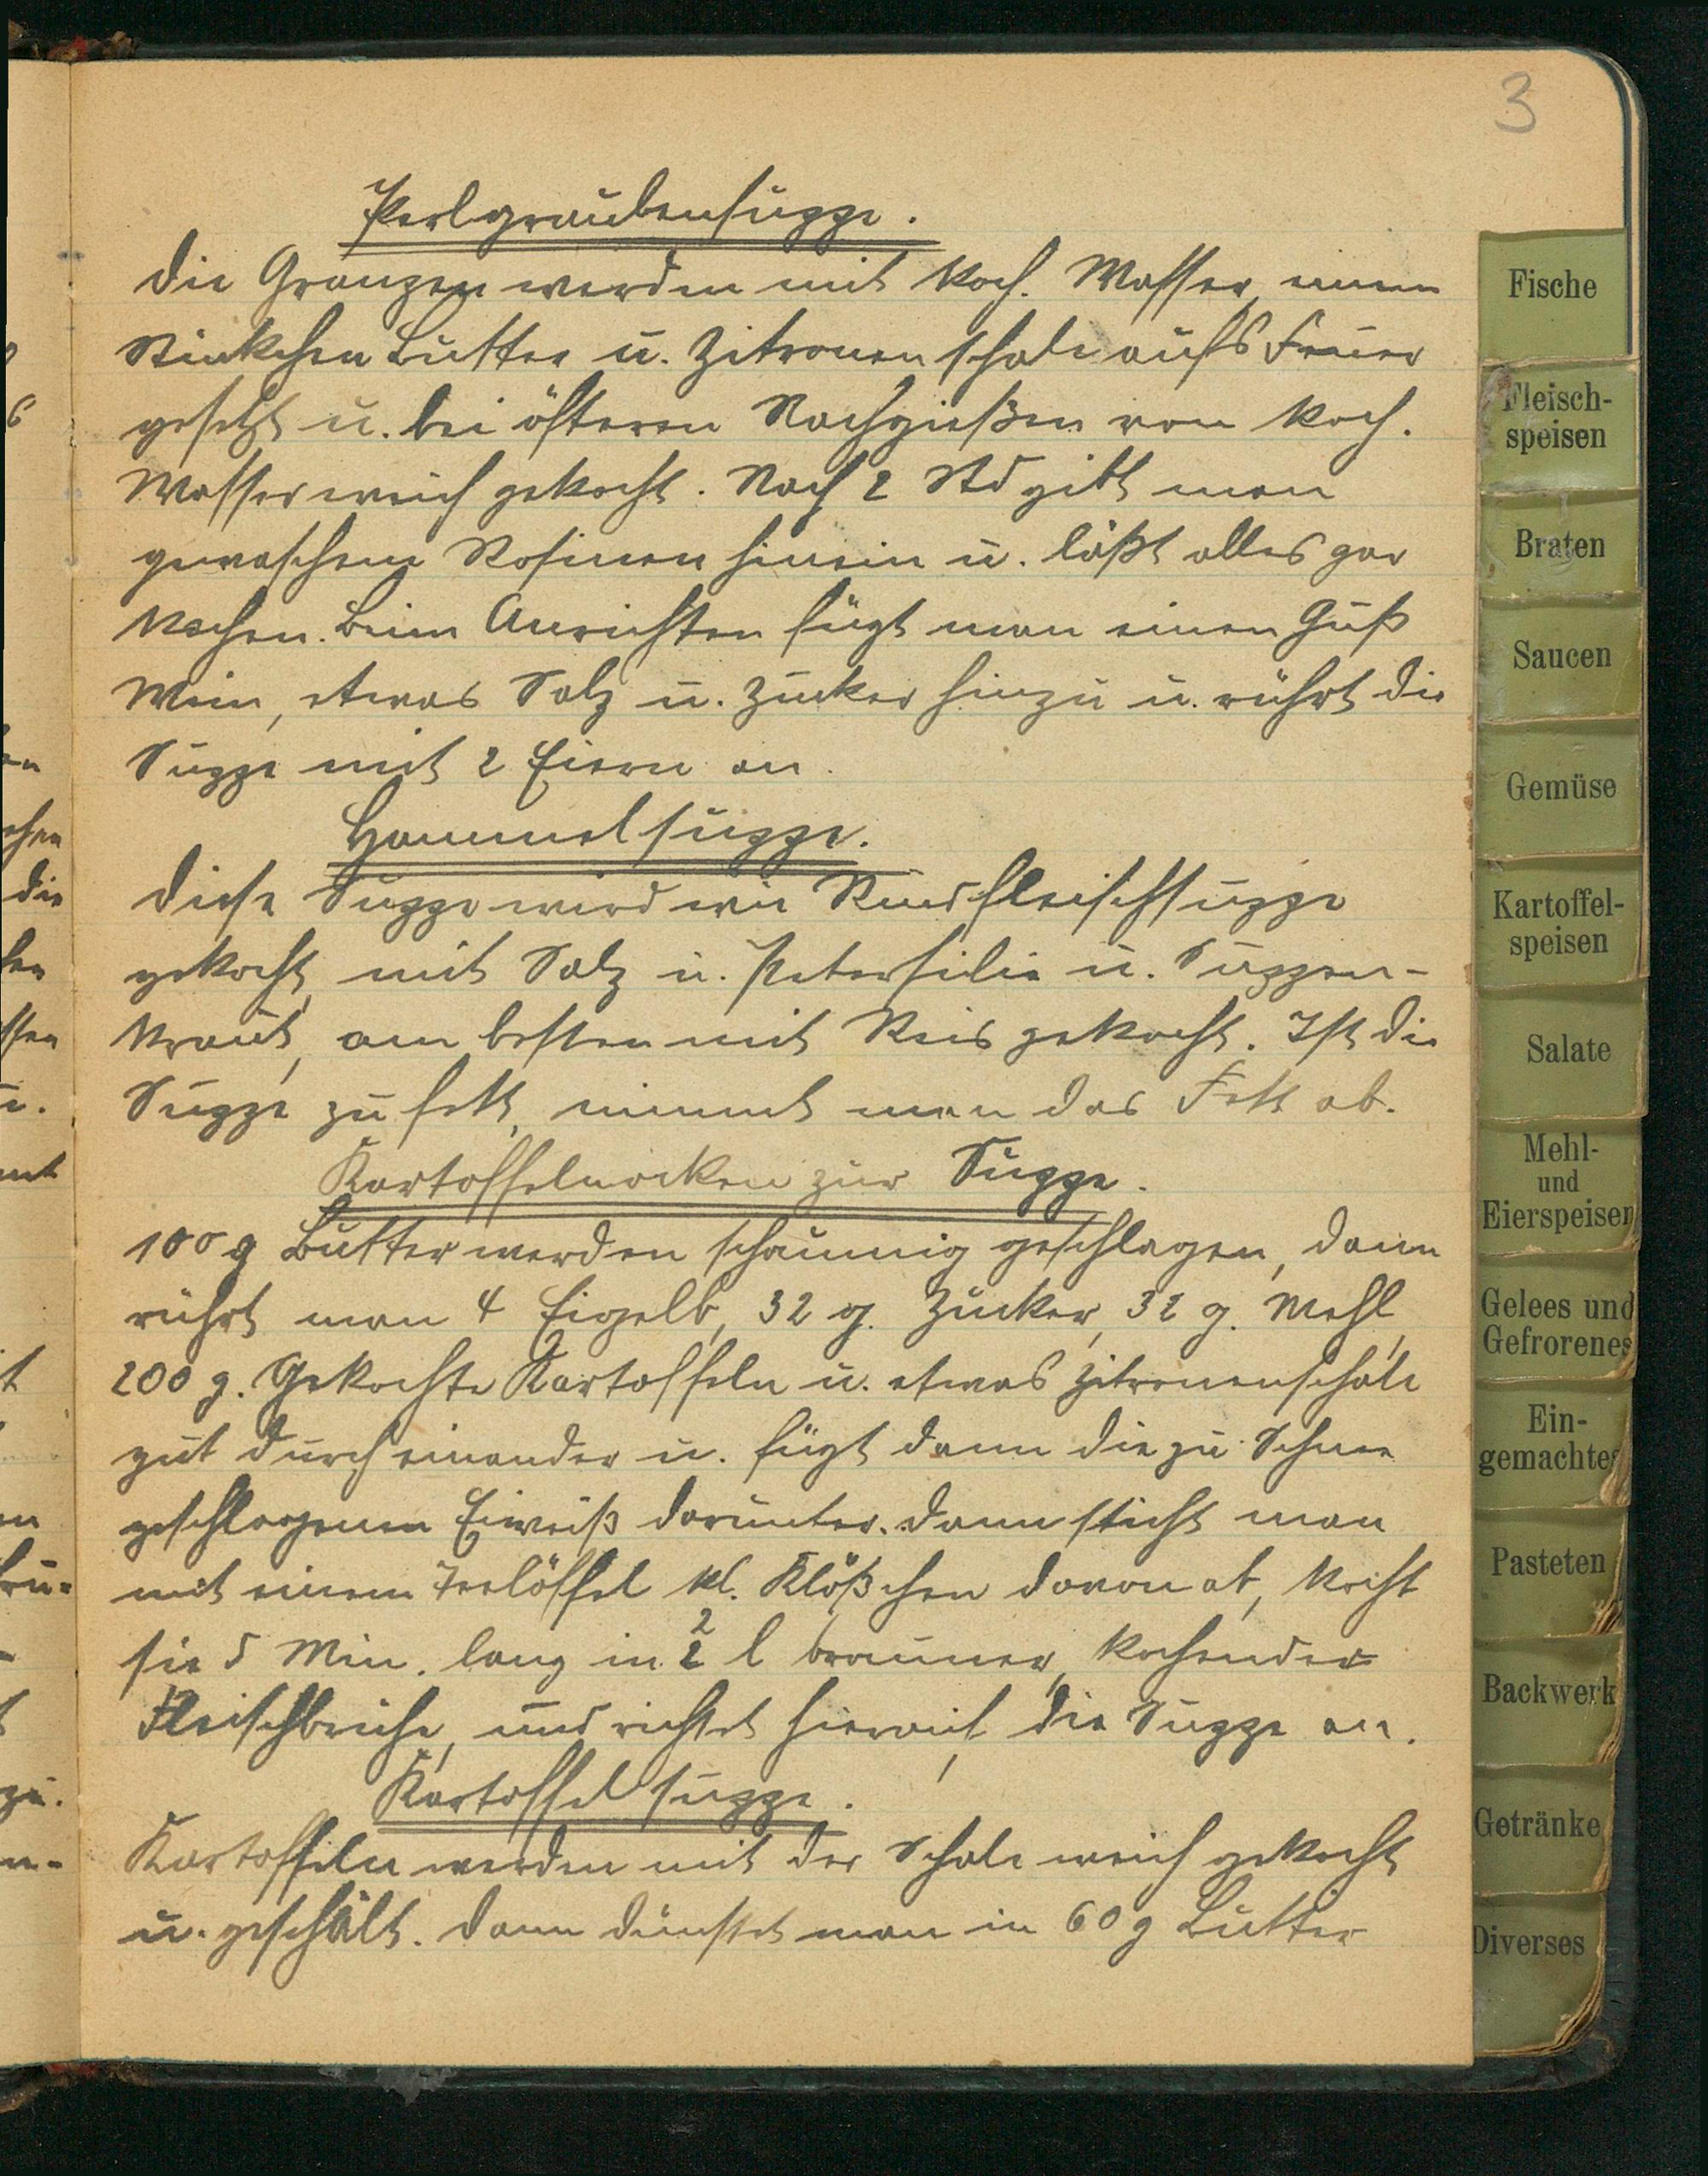 3
Perlgraubensuppe.
Die Graupen werden mit koch. Wasser, einem
Stückchen Butter u. Zitronenschale aufs Feuer
gesetzt u. bei öfteren Nachgießen von koch.
Wasser weich gekocht. Nach 2 Std gibt man
gewaschene Rosinen hinein u. läßt alles gar
kochen. Beim Anrichten fügt man einen Guß
Wein, etwas Salz u. Zucker hinzu u. rührt die
Suppe mit 2 Eiern an.
Hammelsuppe.
Diese Suppe wird wie Rindfleischsuppe
gekocht, mit Salz u. Petersilie u. Suppen-
kraut, am besten mit Reis gekocht. Ist die
Suppe zu fett, nimmt man das Fett ab.
Kartoffelnocken zur Suppe.
100 g Butter werden schaumig geschlagen, dann
rührt man 4 Eigelb, 32 g. Zucker, 32 g. Mehl,
200 g. Gekochte Kartoffeln u. etwas Zitronenschale
gut durcheinander u. fügt dann die zu Schnee
geschlagenen Eiweiß darunter. Dann sticht man
mit einem Teelöffel kl. Klößchen davon ab, kocht
sie 5 Min. lang in 2 l brauner, kochender
Fleischbrühe, und richtet hierauf die Suppe an.
Kartoffelsuppe.
Kartoffeln werden mit der Schale weich gekocht
u. geschält. Dann dünstet man in 60 g Butter
Fische
Fleisch-
speisen
Braten
Saucen
Gemüse
Kartoffel-
speisen
Salate
Mehl-
und
Eierspeisen
Gelees und
Gefrorenes
Ein-
gemachtes
Pasteten
Backwerk
Getränke
Diverses